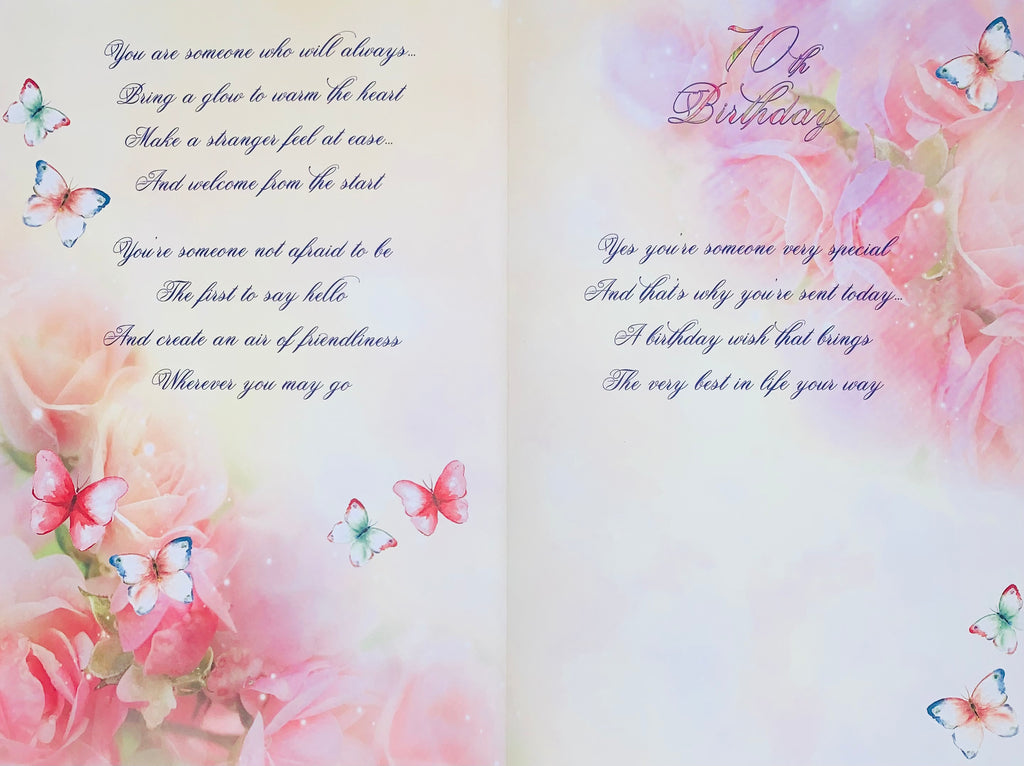 You are someone who will always...
Bring a glow to warm the heart
Make a stranger feel at ease...
And welcome from the start
You're someone not afraid to be
The first to say hello
And create an air of friendliness
Wherever you may go
70th
Birthday
Yes you're someone very special
And that's why you're sent today...
A birthday wish that brings
The very best in life your way